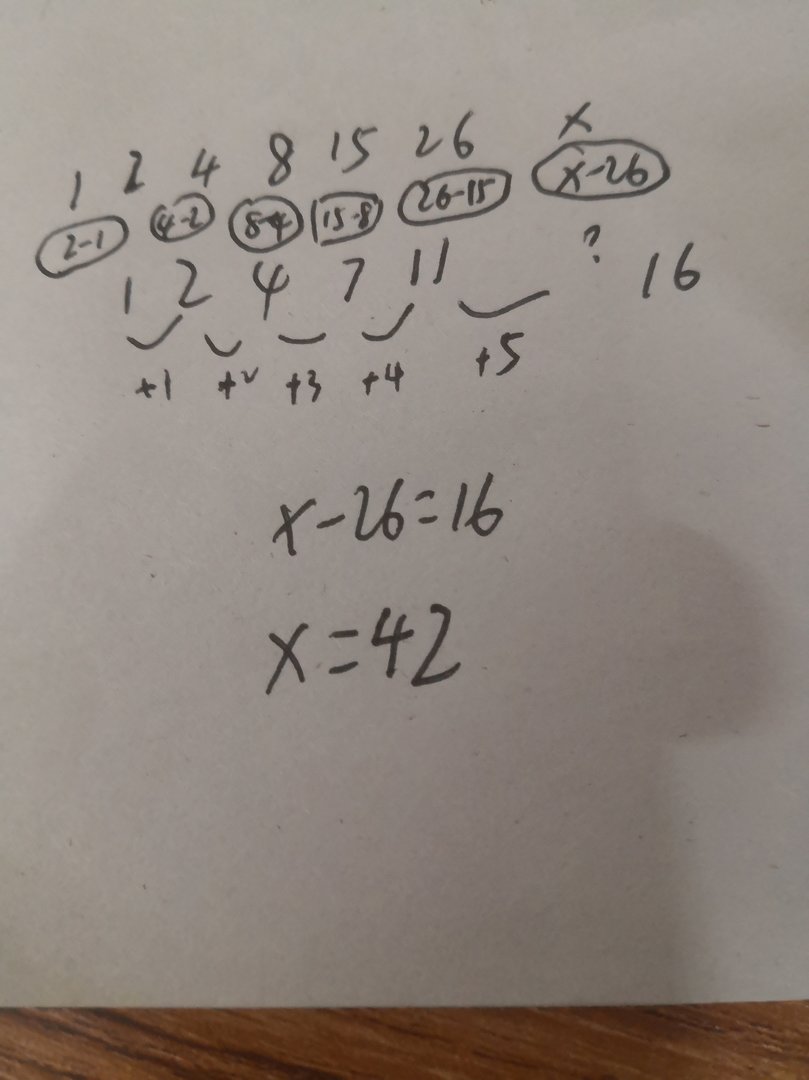 1 2 4 8 15 26 x
2-1 4-2 8-4 15-8 26-15 x-26
1 2 4 7 11 ? 16
+1 +2 +3 +4 +5
x-26=16
x=42